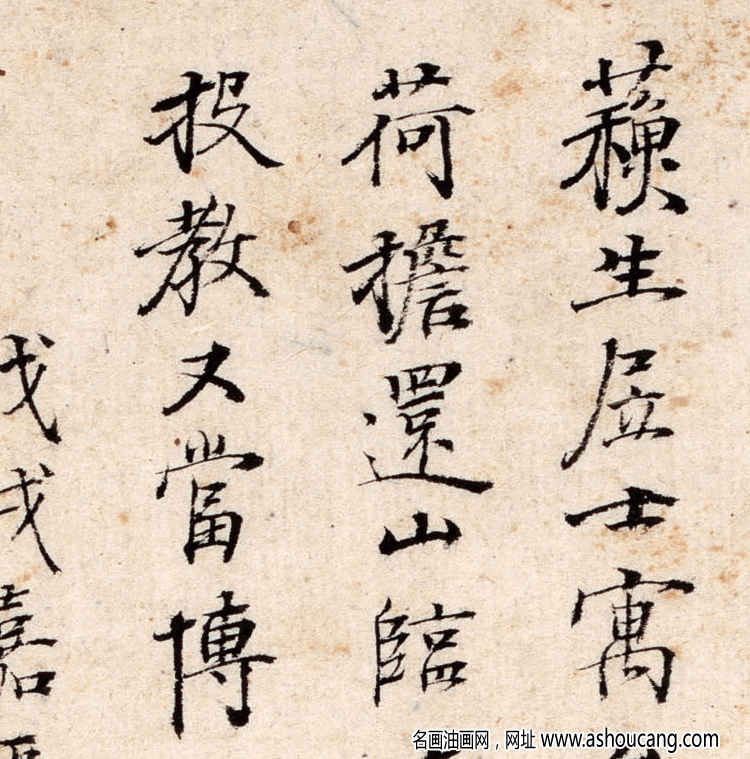 蘓生居士寓
荷擔還山臨
投教又當博
戊戌嘉
名画油画网，网址 www.ashoucang.com